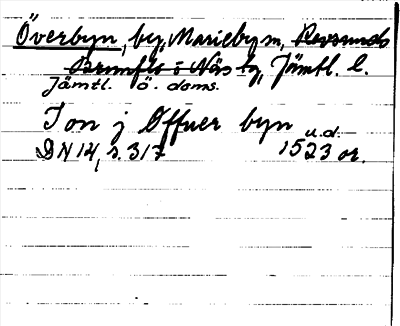 Överbyn, by, Marieby sn, Revsunds
Brunflo o Näs tg, Jämtl. l.
Jämtl. ö. doms.
Ion j Offuer byn
u.d.
DN 14, s. 317 1523 or.